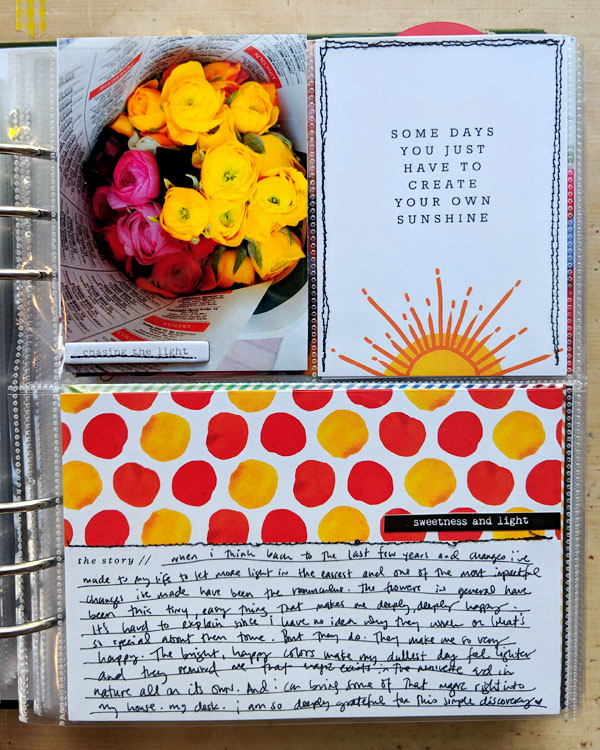 chasing the light
SOME DAYS
YOU JUST
HAVE TO
CREATE
YOUR OWN
SUNSHINE
sweetness and light
the story // when i think back to the last few years and changes i've
made to my life to let more light in the easiest and one of the most impactful
changes i've made have been the ranunculus. The flowers in general have
been this tiny easy thing that makes me deeply, deeply happy.
It's hard to explain since i have no idea why they work or what's
so special about them to me. But they do. They make me so very
happy. The bright, happy colors make my dullest day feel lighter
and they remind me that magic exists in the universe and in
nature all on its own. And i can bring some of that magic right into
my house. my desk. i am so deeply grateful for this simple discovery